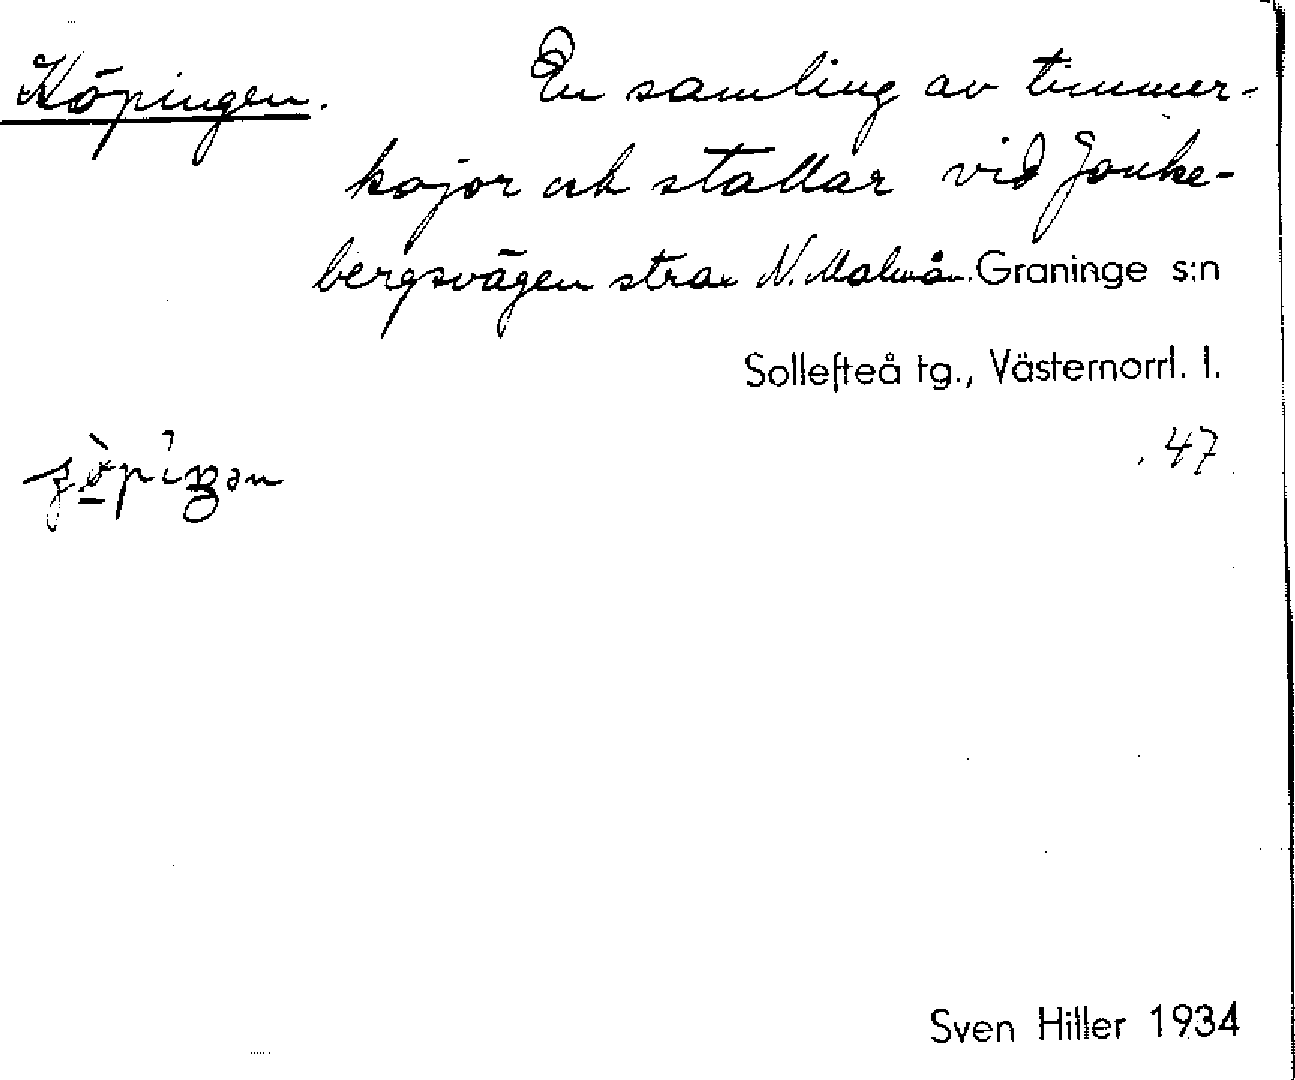 Köpingen.
En samling av timmer-
kojor och stallar vid Jonke-
bergsvägen strax N. Malmån. Graninge s:n
Sollefteå tg., Västernorrl. l.
47
Sven Hiller 1934